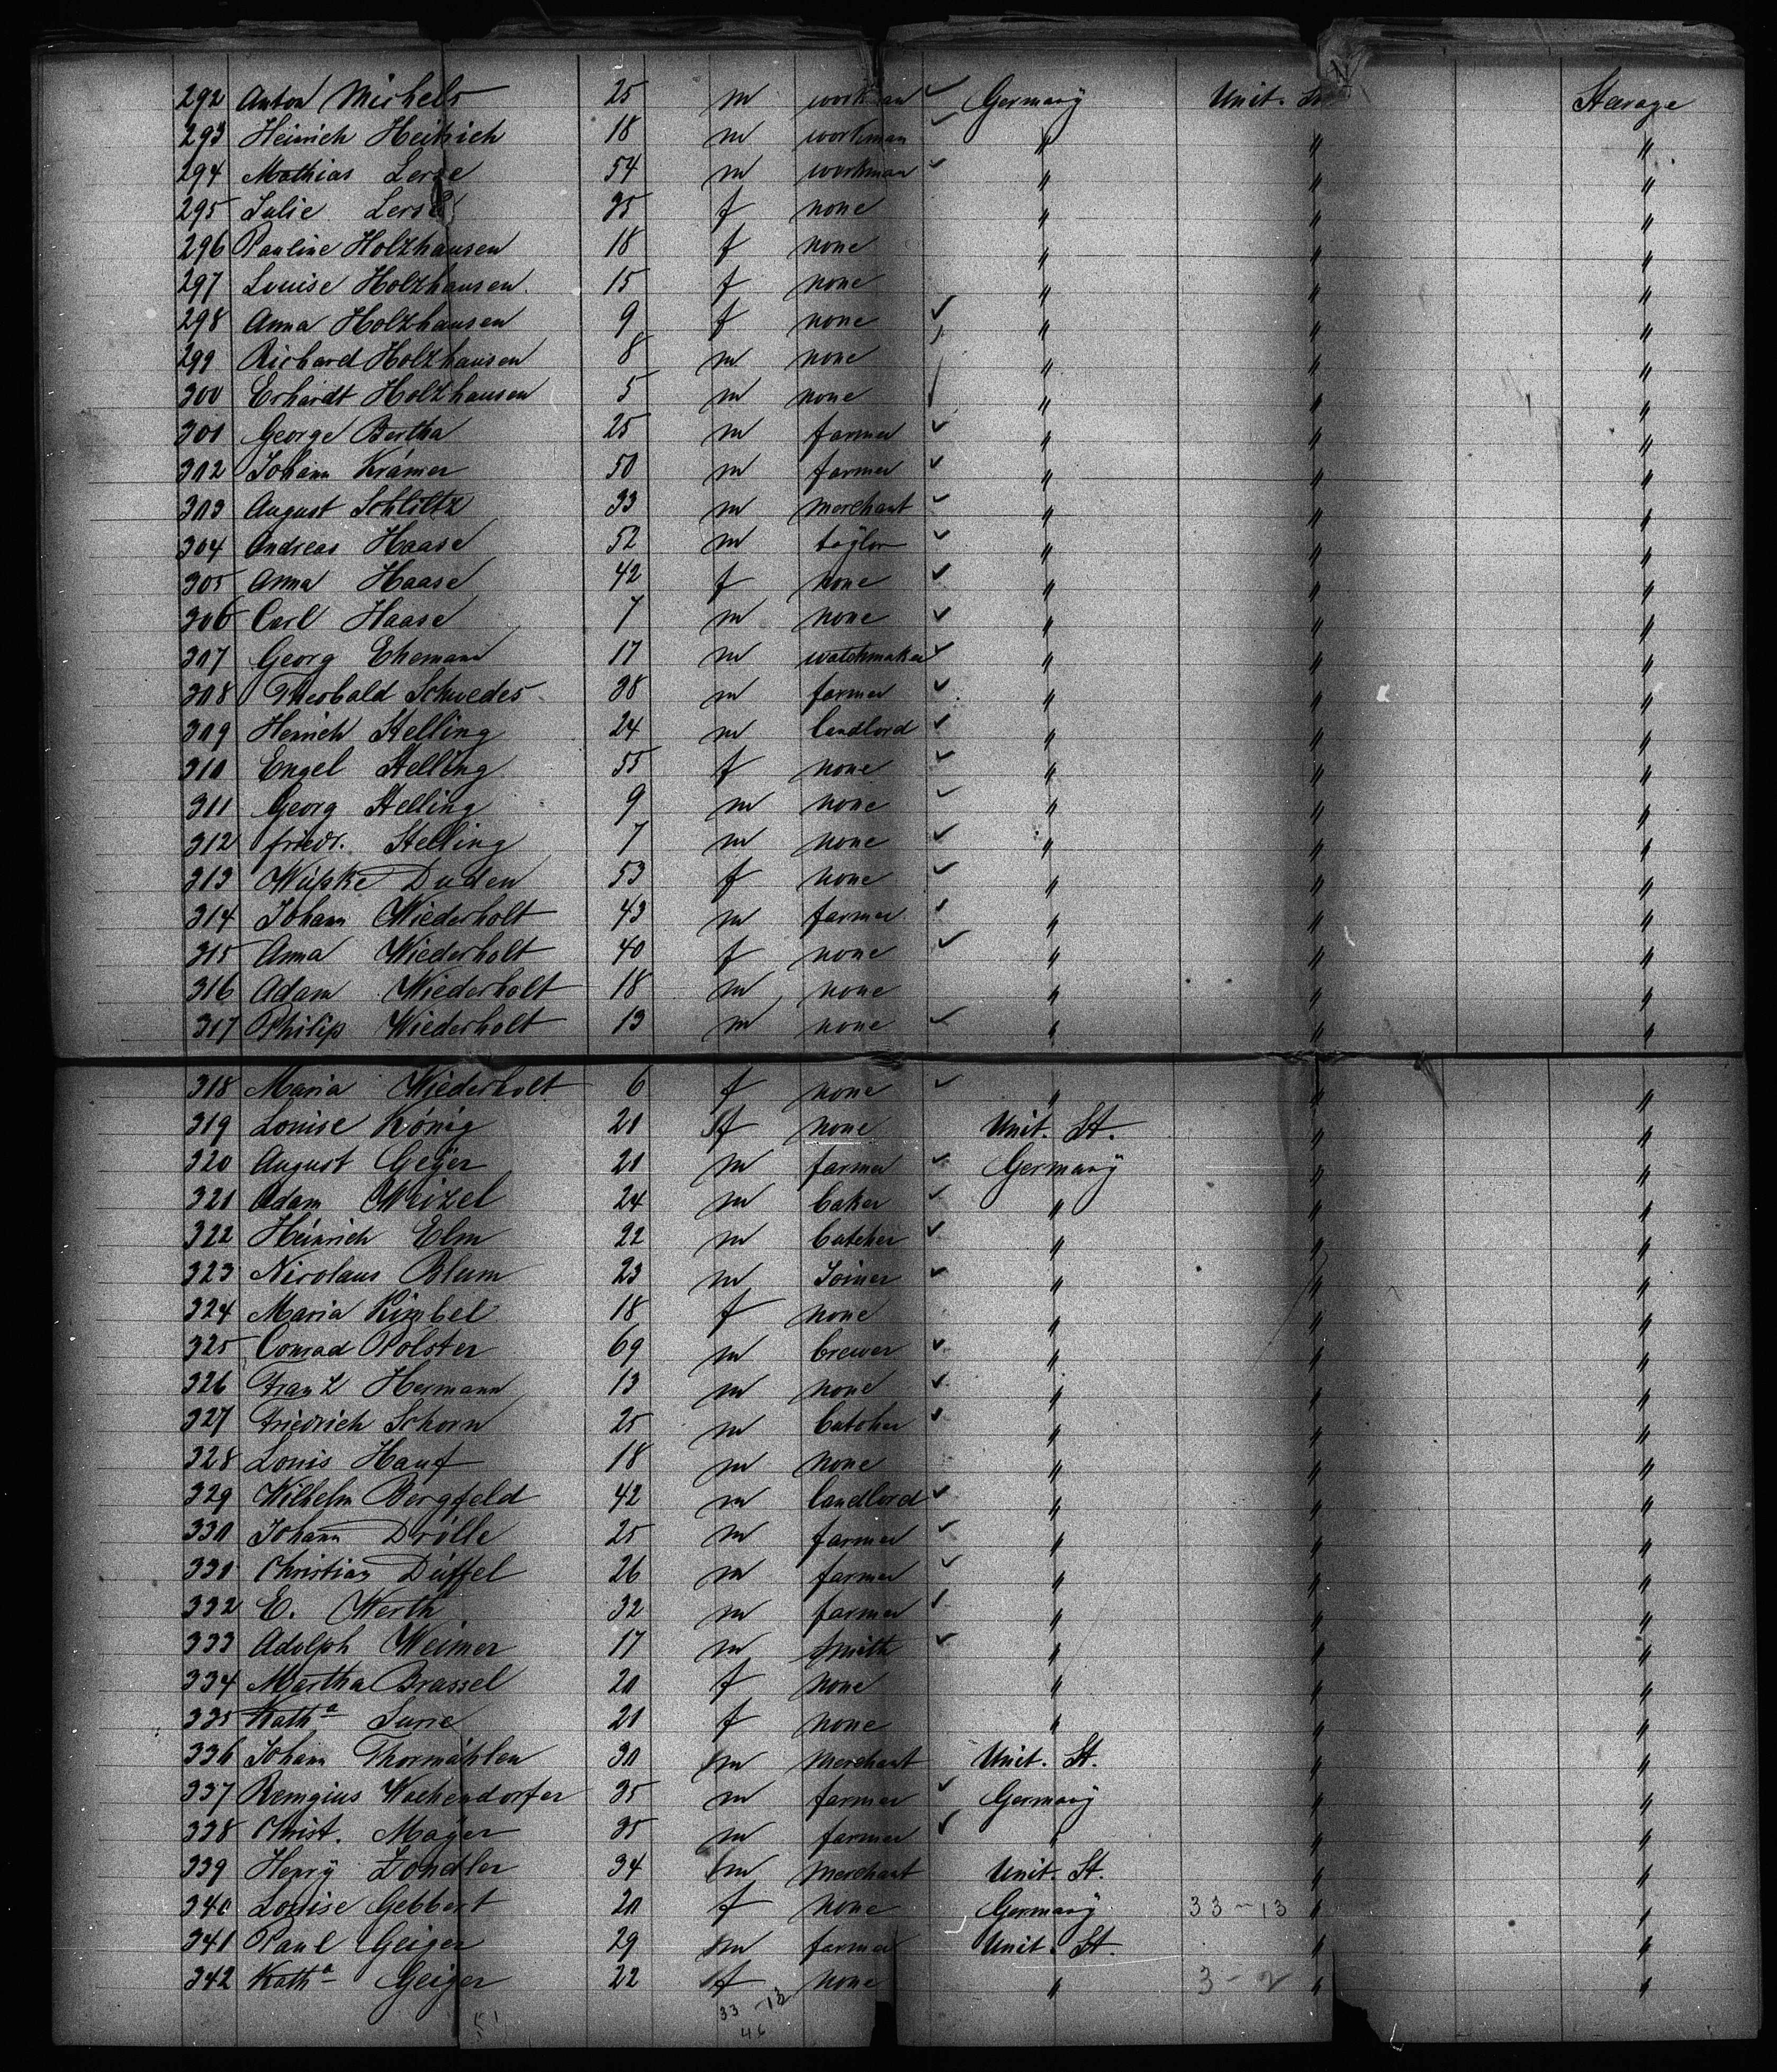 292 Anton Michels 25 m workman Germany Unit. St. Stearage
293 Heinrich Heinrich 18 m workman " " "
294 Mathias Lerse 54 m workman " " "
295 Julie Lerse 35 f none " " "
296 Pauline Holzhausen 18 f none " " "
297 Louise Holzhausen 15 f none " " "
298 Anna Holzhausen 9 f none " " "
299 Richard Holzhausen 8 m none " " "
300 Erhardt Holzhausen 5 m none " " "
301 George Bertha 25 m farmer " " "
302 Johann Krämer 50 m farmer " " "
303 August Schlültz 33 m merchant " " "
304 Andreas Haase 52 m taÿlor " " "
305 Anna Haase 42 f none " " "
306 Carl Haase 7 m none " " "
307 Georg Ehemann 17 m watchmaker " " "
308 Theobald Schwedes 38 m farmer " " "
309 Heinrich Stelling 24 m landlord " " "
310 Engel Stelling 55 f none " " "
311 Georg Stelling 9 m none " " "
312 friedr. Stelling 7 m none " " "
313 Wüpke Duden 53 f none " " "
314 Johann Wiederholt 43 m farmer " " "
315 Anna Wiederholt 40 f none " " "
316 Adam Wiederholt 18 m none " " "
317 Philip Wiederholt 13 m none " " "
318 Maria Wiederholt 6 f none " " "
319 Louise König 21 f none Unit. St. " "
320 August Geÿer 21 m farmer Germany " "
321 Adam Weizel 24 m baker " " "
322 Heinrich Elm 22 m butcher " " "
323 Nicolaus Blum 23 m Joiner " " "
324 Maria Kimbel 18 f none " " "
325 Conrad Polster 69 m brewer " " "
326 Franz Hermann 13 m none " " "
327 Friedrich Schorn 25 m butcher " " "
328 Louis Hauf 18 m none " " "
329 Wilhelm Bergfeld 42 m landlord " " "
330 Johann Drölle 25 m farmer " " "
331 Christian Düffel 26 m farmer " " "
332 E. Werth 32 m farmer " " "
333 Adolph Weimer 17 m smith " " "
334 Martha Brassel 20 f none " " "
335 Kath<sup>a</sup> Surie 21 f none " " "
336 Johann Thormählen 30 m merchant Unit. St. " "
337 Remigius Wachendorfer 35 m farmer Germany " "
338 Christ. Mager 35 m farmer " " "
339 Henrÿ Zondler 34 m merchant Unit. St. " "
340 Louise Gebbert 20 f none Germany 33-13 " "
341 Paul Geiger 29 m farmer Unit. St. " "
342 Kath<sup>a</sup> Geiger 22 f none " 3-2 " "
33-13
46